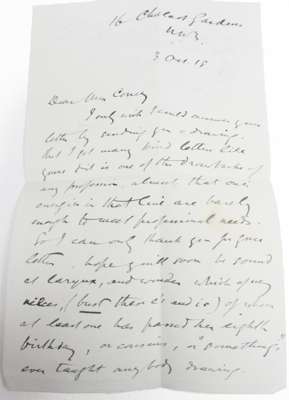 16 Chalcot Gardens
N.W.3.
3 Oct 18
Dear Miss Conery
I only wish I could answer your
letter by sending you a drawing.
but I get many kind letters like
yours & it is one of the drawbacks of
my profession almost that one's
energies in that line are barely
enough to meet professional needs.
So I can only thank you for your
letter, hope you'll soon be sound
at larynx, and wonder which of my
nieces, (but there is and is) of whom
at least one has passed her eighth
birthday, or cousins, or "something",
ever taught anybody drawing.